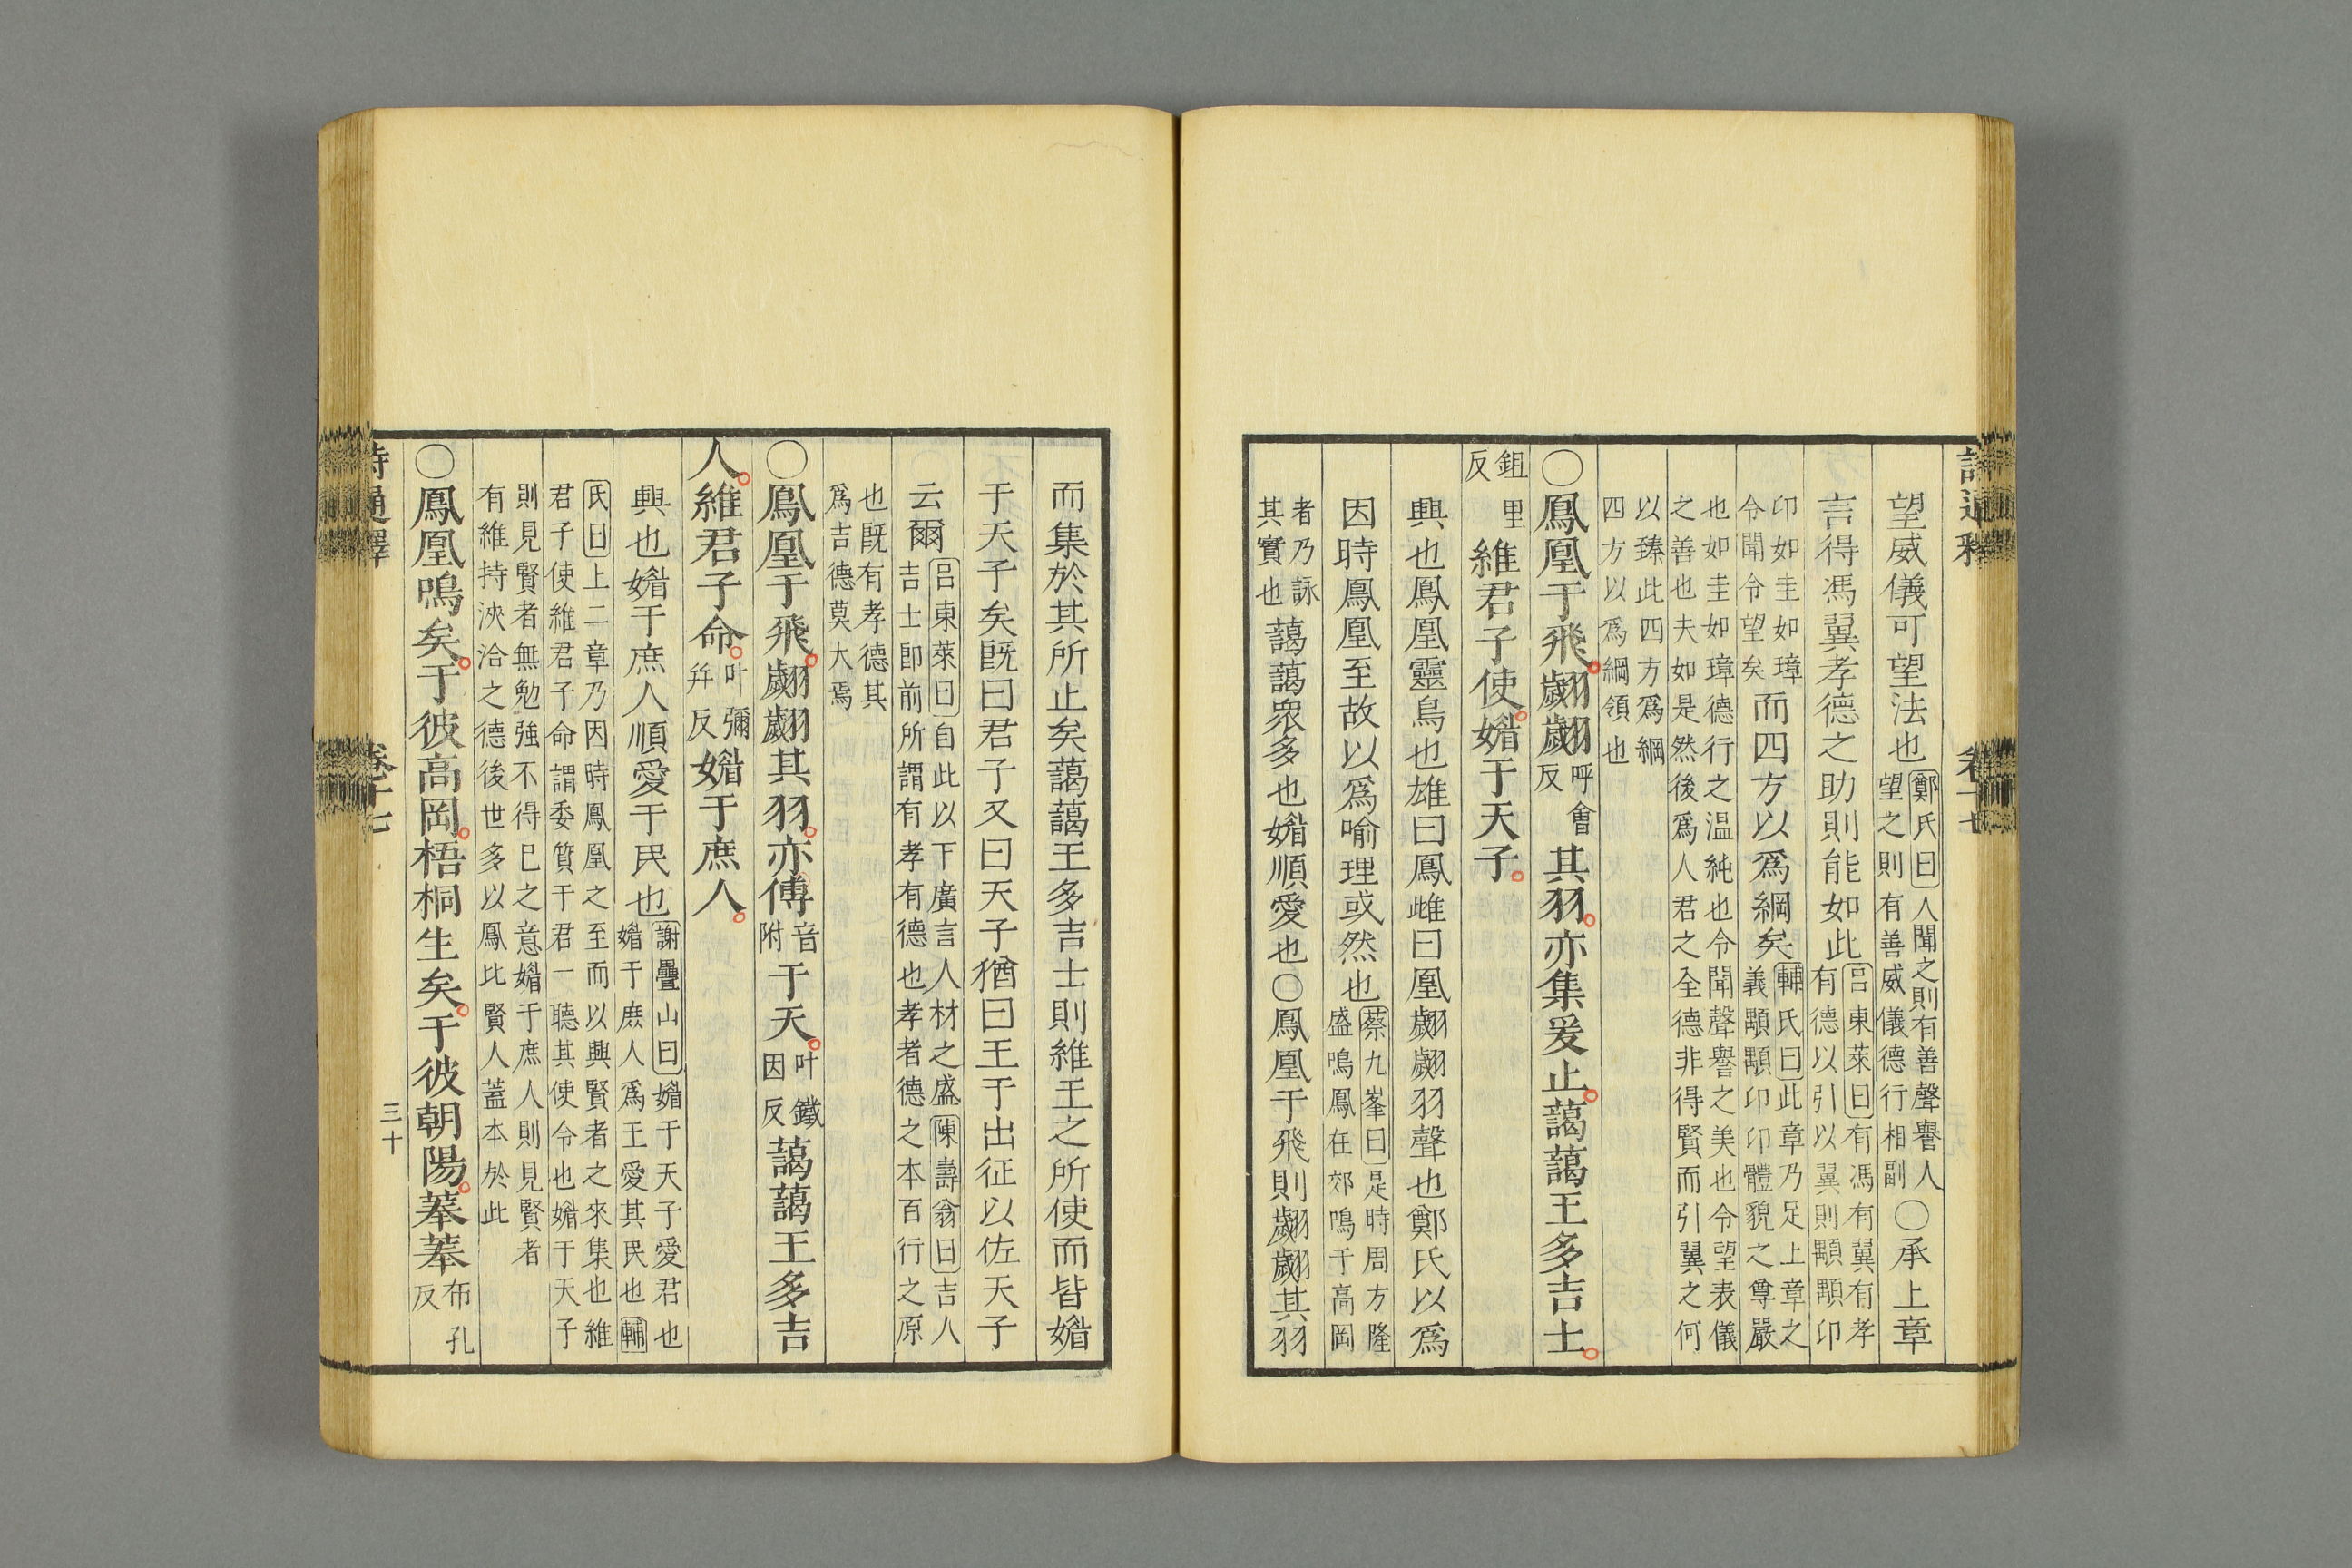 詩通釋 卷十七
望威儀可望法也鄭氏曰人聞之則有善聲譽人望之則有善威儀德行相副○承上章
言得馮翼孝德之助則能如此呂東萊曰有馮有翼有孝有德以引以翼則顒顒卬
卬如圭如璋令聞令望矣而四方以爲綱矣輔氏曰此章乃足上章之義顒顒卬卬體貌之尊嚴
也如圭如璋德行之温純也令聞聲譽之美也令望表儀之善也夫如是然後爲人君之全德非得賢而引翼之何
以臻此四方爲綱四方以爲綱領也
○鳳凰于飛翽翽呼會反其羽亦集爰止藹藹王多吉士
鉏里反維君子使媚于天子
興也鳳凰靈鳥也雄曰鳳雌曰凰翽翽羽聲也鄭氏以爲
因時鳳凰至故以爲喻理或然也蔡九峯曰是時周方隆盛鳴鳳在郊鳴于高岡
者乃詠其實也藹藹衆多也媚順愛也○鳳凰于飛則翽翽其羽
而集於其所止矣藹藹王多吉士則維王之所使而皆媚
于天子矣既曰君子又曰天子猶曰王于出征以佐天子
云爾呂東萊曰自此以下廣言人材之盛陳壽翁曰吉人吉士卽前所謂有孝有德也孝者德之本百行之原
也既有孝德其爲吉德莫大焉
○鳳凰于飛翽翽其羽亦傅音附于天叶鐵因反藹藹王多吉
人維君子命叶彌幷反媚于庶人
興也媚于庶人順愛于民也謝疊山曰媚于天子愛君也媚于庶人爲王愛其民也輔
氏曰上二章乃因時鳳凰之至而以興賢者之來集也維君子使維君子命謂委質于君一聽其使令也媚于天子
則見賢者無勉強不得已之意媚于庶人則見賢者有維持浹洽之德後世多以鳳比賢人蓋本於此
○鳳凰鳴矣于彼高岡梧桐生矣于彼朝陽菶菶布孔反
詩通釋 卷十七 三十